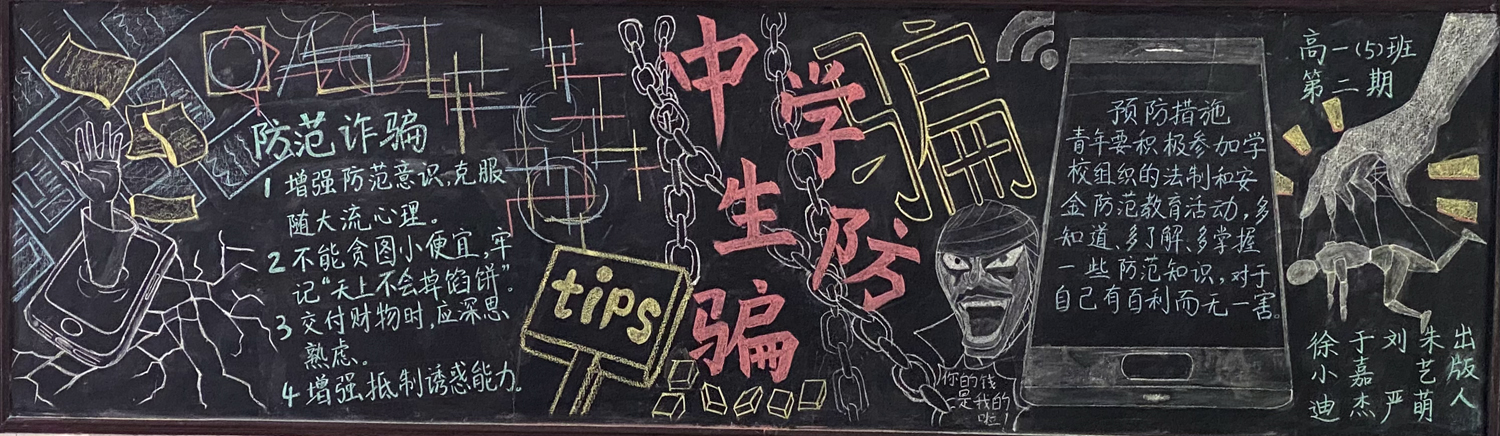 防范诈骗
1 增强防范意识,克服
随大流心理。
2 不能贪图小便宜,牢
记“天上不会掉馅饼”。
3 交付财物时,应深思
熟虑。
4 增强抵制诱惑能力。
tips
中学生防骗
骗
你的钱
是我的
啦!
预防措施
青年要积极参加学
校组织的法制和安
全防范教育活动,多
知道、多了解、多掌握
一些防范知识,对于
自己有百利而无一害。
高一(5)班
第二期
出版人
朱艺萌
刘严
于嘉杰
徐小迪